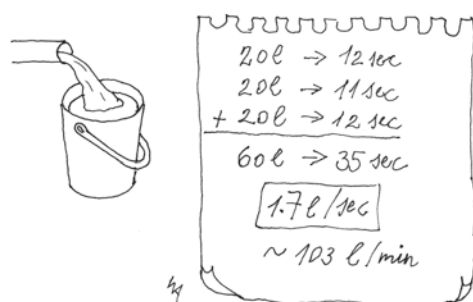 20l → 12 sec
20l → 11 sec
+ 20l → 12 sec
60l → 35 sec
1.7 l/sec
~ 103 l/min